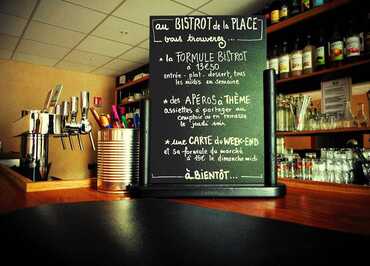 au BISTROT de la PLACE
vous trouverez...
* la FORMULE BISTROT
à 13€50
entrée - plat - dessert, tous
les midis
* des APÉROS à THÈME
assiettes à partager au
comptoir ou en terrasse
le jeudi soir
* une CARTE du WEEK-END
et sa formule du marché
à 19€ le dimanche midi
à BIENTÔT...